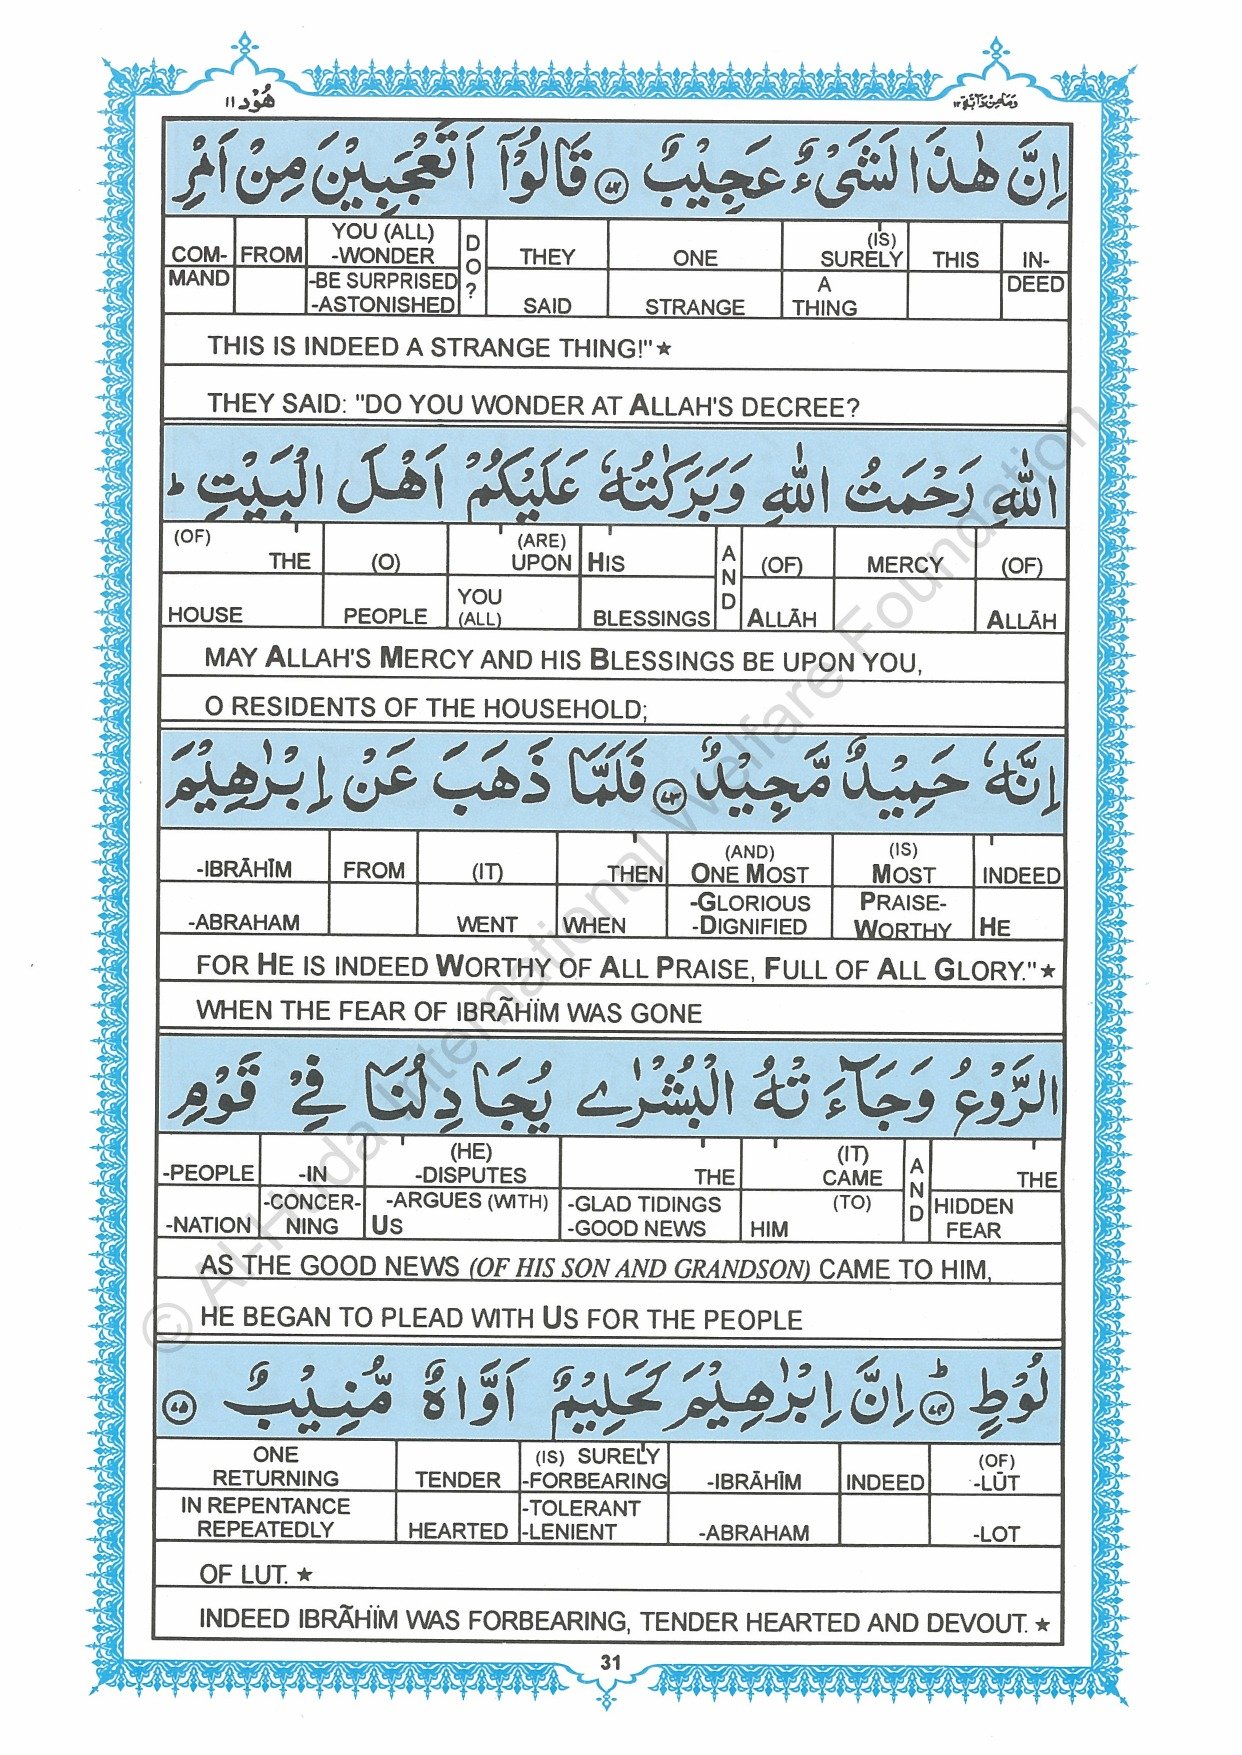 هُوْد ١١
وَمَا مِنْ دَآبَّةٍ ١٢
اِنَّ هٰذَا لَشَیْءٌ عَجِیْبٌ ﴿۷۲﴾ قَالُوْۤا اَتَعْجَبِیْنَ مِنْ اَمْرِ
COM-MAND FROM YOU (ALL) -WONDER -BE SURPRISED -ASTONISHED DO? THEY SAID ONE STRANGE (IS) SURELY A THING THIS IN-DEED
THIS IS INDEED A STRANGE THING!"★
THEY SAID: "DO YOU WONDER AT ALLAH'S DECREE?
اللّٰهِ رَحْمَتُ اللّٰهِ وَبَرَكٰتُهٗ عَلَیْكُمْ اَهْلَ الْبَیْتِ ؕ
(OF) THE HOUSE (O) PEOPLE (ARE) UPON YOU (ALL) HIS BLESSINGS AND (OF) ALLĀH MERCY (OF) ALLĀH
MAY ALLAH'S MERCY AND HIS BLESSINGS BE UPON YOU,
O RESIDENTS OF THE HOUSEHOLD;
اِنَّهٗ حَمِیْدٌ مَّجِیْدٌ ﴿۷۳﴾ فَلَمَّا ذَهَبَ عَنْ اِبْرٰهِیْمَ
-IBRĀHĪM -ABRAHAM FROM (IT) WENT THEN WHEN (AND) ONE MOST -GLORIOUS -DIGNIFIED (IS) MOST PRAISE-WORTHY INDEED HE
FOR HE IS INDEED WORTHY OF ALL PRAISE, FULL OF ALL GLORY."★
WHEN THE FEAR OF IBRÃHÏM WAS GONE
الرَّوْعُ وَجَآءَتْهُ الْبُشْرٰی یُجَادِلُنَا فِیْ قَوْمِ
-PEOPLE -NATION -IN -CONCER-NING (HE) -DISPUTES -ARGUES (WITH) US THE -GLAD TIDINGS -GOOD NEWS (IT) CAME (TO) HIM AND THE HIDDEN FEAR
AS THE GOOD NEWS (OF HIS SON AND GRANDSON) CAME TO HIM,
HE BEGAN TO PLEAD WITH US FOR THE PEOPLE
لُوْطٍ ؕ﴿۷۴﴾ اِنَّ اِبْرٰهِیْمَ لَحَلِیْمٌ اَوَّاهٌ مُّنِیْبٌ ﴿۷۵﴾
ONE RETURNING IN REPENTANCE REPEATEDLY TENDER HEARTED (IS) SURELY -FORBEARING -TOLERANT -LENIENT -IBRĀHĪM -ABRAHAM INDEED (OF) -LŪT -LOT
OF LUT. ★
INDEED IBRÃHÏM WAS FORBEARING, TENDER HEARTED AND DEVOUT. ★
31
© Al-Huda International Welfare Foundation